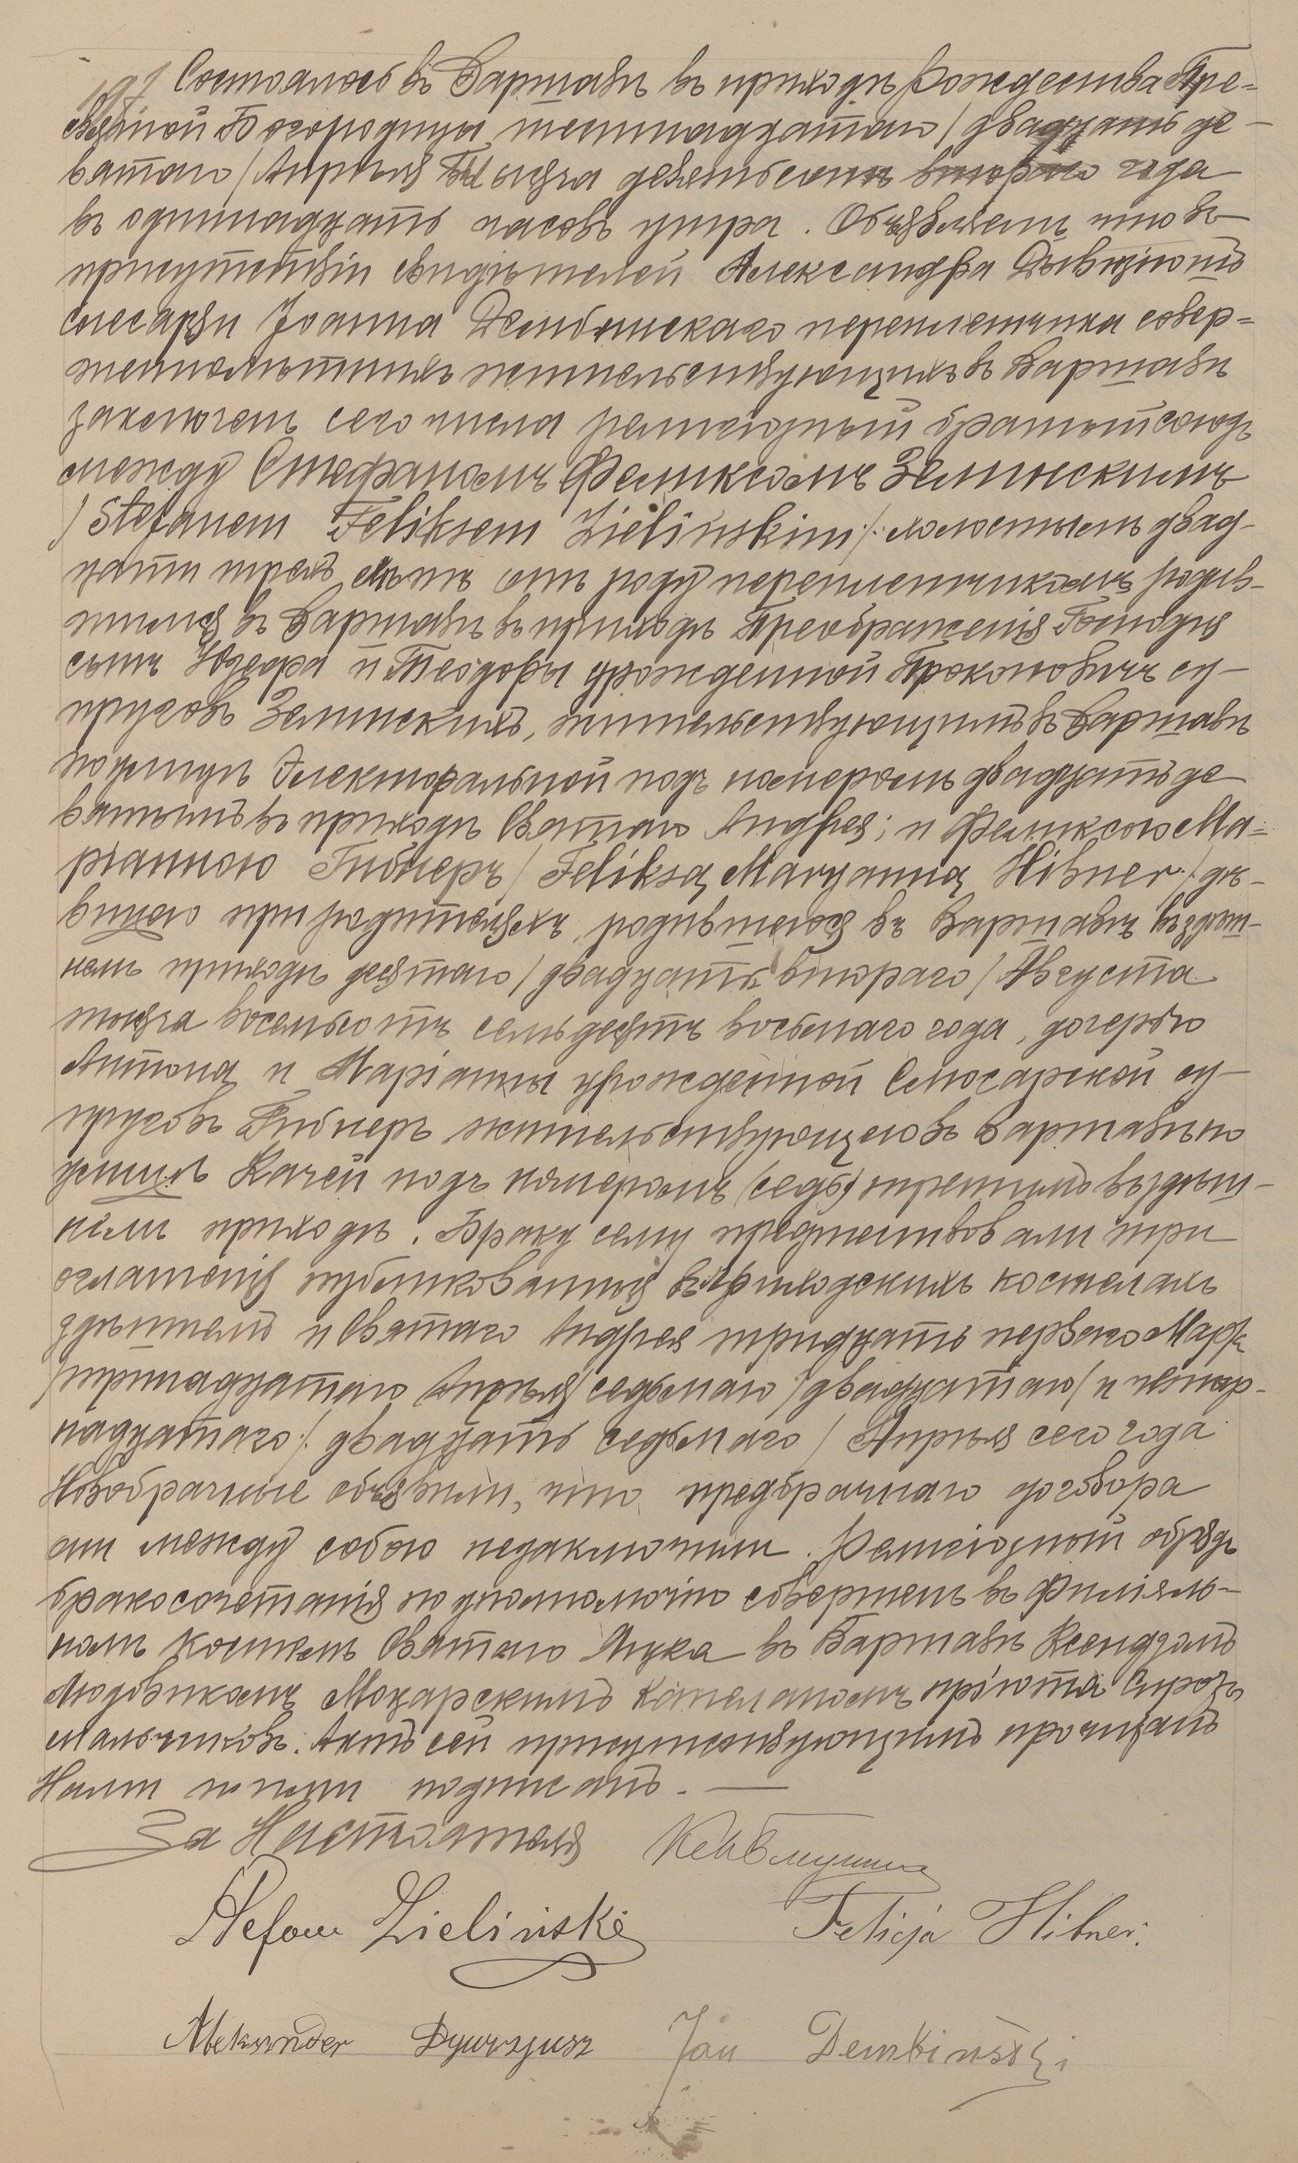 Состоялось въ Варшавѣ въ приходѣ Рождества Пре=
святой Богородицы шестнадцатаго / двадцать де-
вятаго / Апрѣля Тысяча девятьсотъ второго года
въ одиннадцать часовъ утра. Объявляемъ что въ
присутствіи свидѣтелей Александра
слесаря Іоанна Дембинскаго переплетчика совер=
шеннолѣтнихъ жительствующихъ въ Варшавѣ
заключенъ сего числа религіозный брачный союзъ
между Стефаномъ Феликсомъ Зелинскимъ
/ Stefanem Feliksem Zielińskim /: холостымъ двад-
цати трехъ лѣтъ отъ роду переплетчикомъ родив-
шимся въ Варшавѣ въ приходѣ Преображенія Господня
сынъ Юзефа и Теодоры урожденной Прокоповичъ су-
пруговъ Зелинскихъ, жительствующимъ въ Варшавѣ
по улицѣ Электоральной подъ номеромъ двадцать де-
вятымъ въ приходѣ Святаго Андрея; и Феликсою Ма=
ріанною Гибнеръ / Feliksą Maryanną Hibner / дѣ-
вицею при родителяхъ, родившеюся въ Варшавѣ въ здѣш-
немъ приходѣ десятаго / двадцать втораго / Августа
тысяча восемьсотъ семьдесятъ восьмаго года, дочерью
Антона и Маріанны урожденной Слюсарской су-
пруговъ Гибнеръ жительствующею въ Варшавѣ по
улицѣ Качей подъ номеромъ (седь) третимъ въ здѣш-
немъ приходѣ. Браку сему предшествовали три
оглашенія публикованныя въ приходскихъ костелахъ
здѣшнемъ и Святаго Андрея тридцать перваго Марта
/ тринадцатаго Апрѣля / седьмаго / двадцатаго / и четыр-
надцатаго /: двадцать седьмаго / Апрѣля сего года
Новобрачные объявили, что предбрачнаго договора
они между собою незаключили. Религіозный обрядъ
бракосочетанія по уполномочію совершенъ въ Филіаль-
номъ костелѣ Святаго Луки въ Варшавѣ Ксендзомъ
Людвикомъ Мохарскимъ Капеланомъ пріюта Сиротъ
мальчиковъ. Актъ сей присутствующимъ прочитанъ
Нами и ними подписанъ. —
За Настоятеля
Stefan Zieliński Felicja Hibner.
Aleksander Jan Dembiński